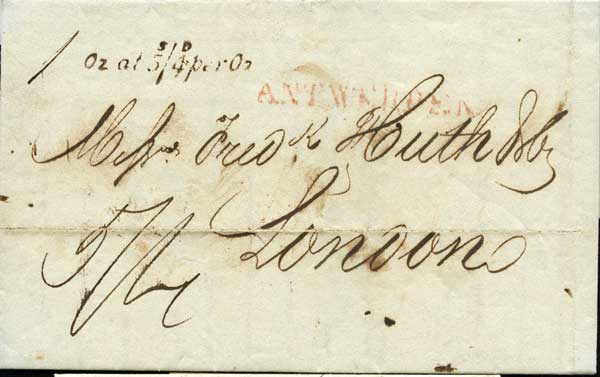 1 Oz at 5/4 per Oz
S D
ANTWERPEN
Messrs Fredk Huth & Co
5/4 London